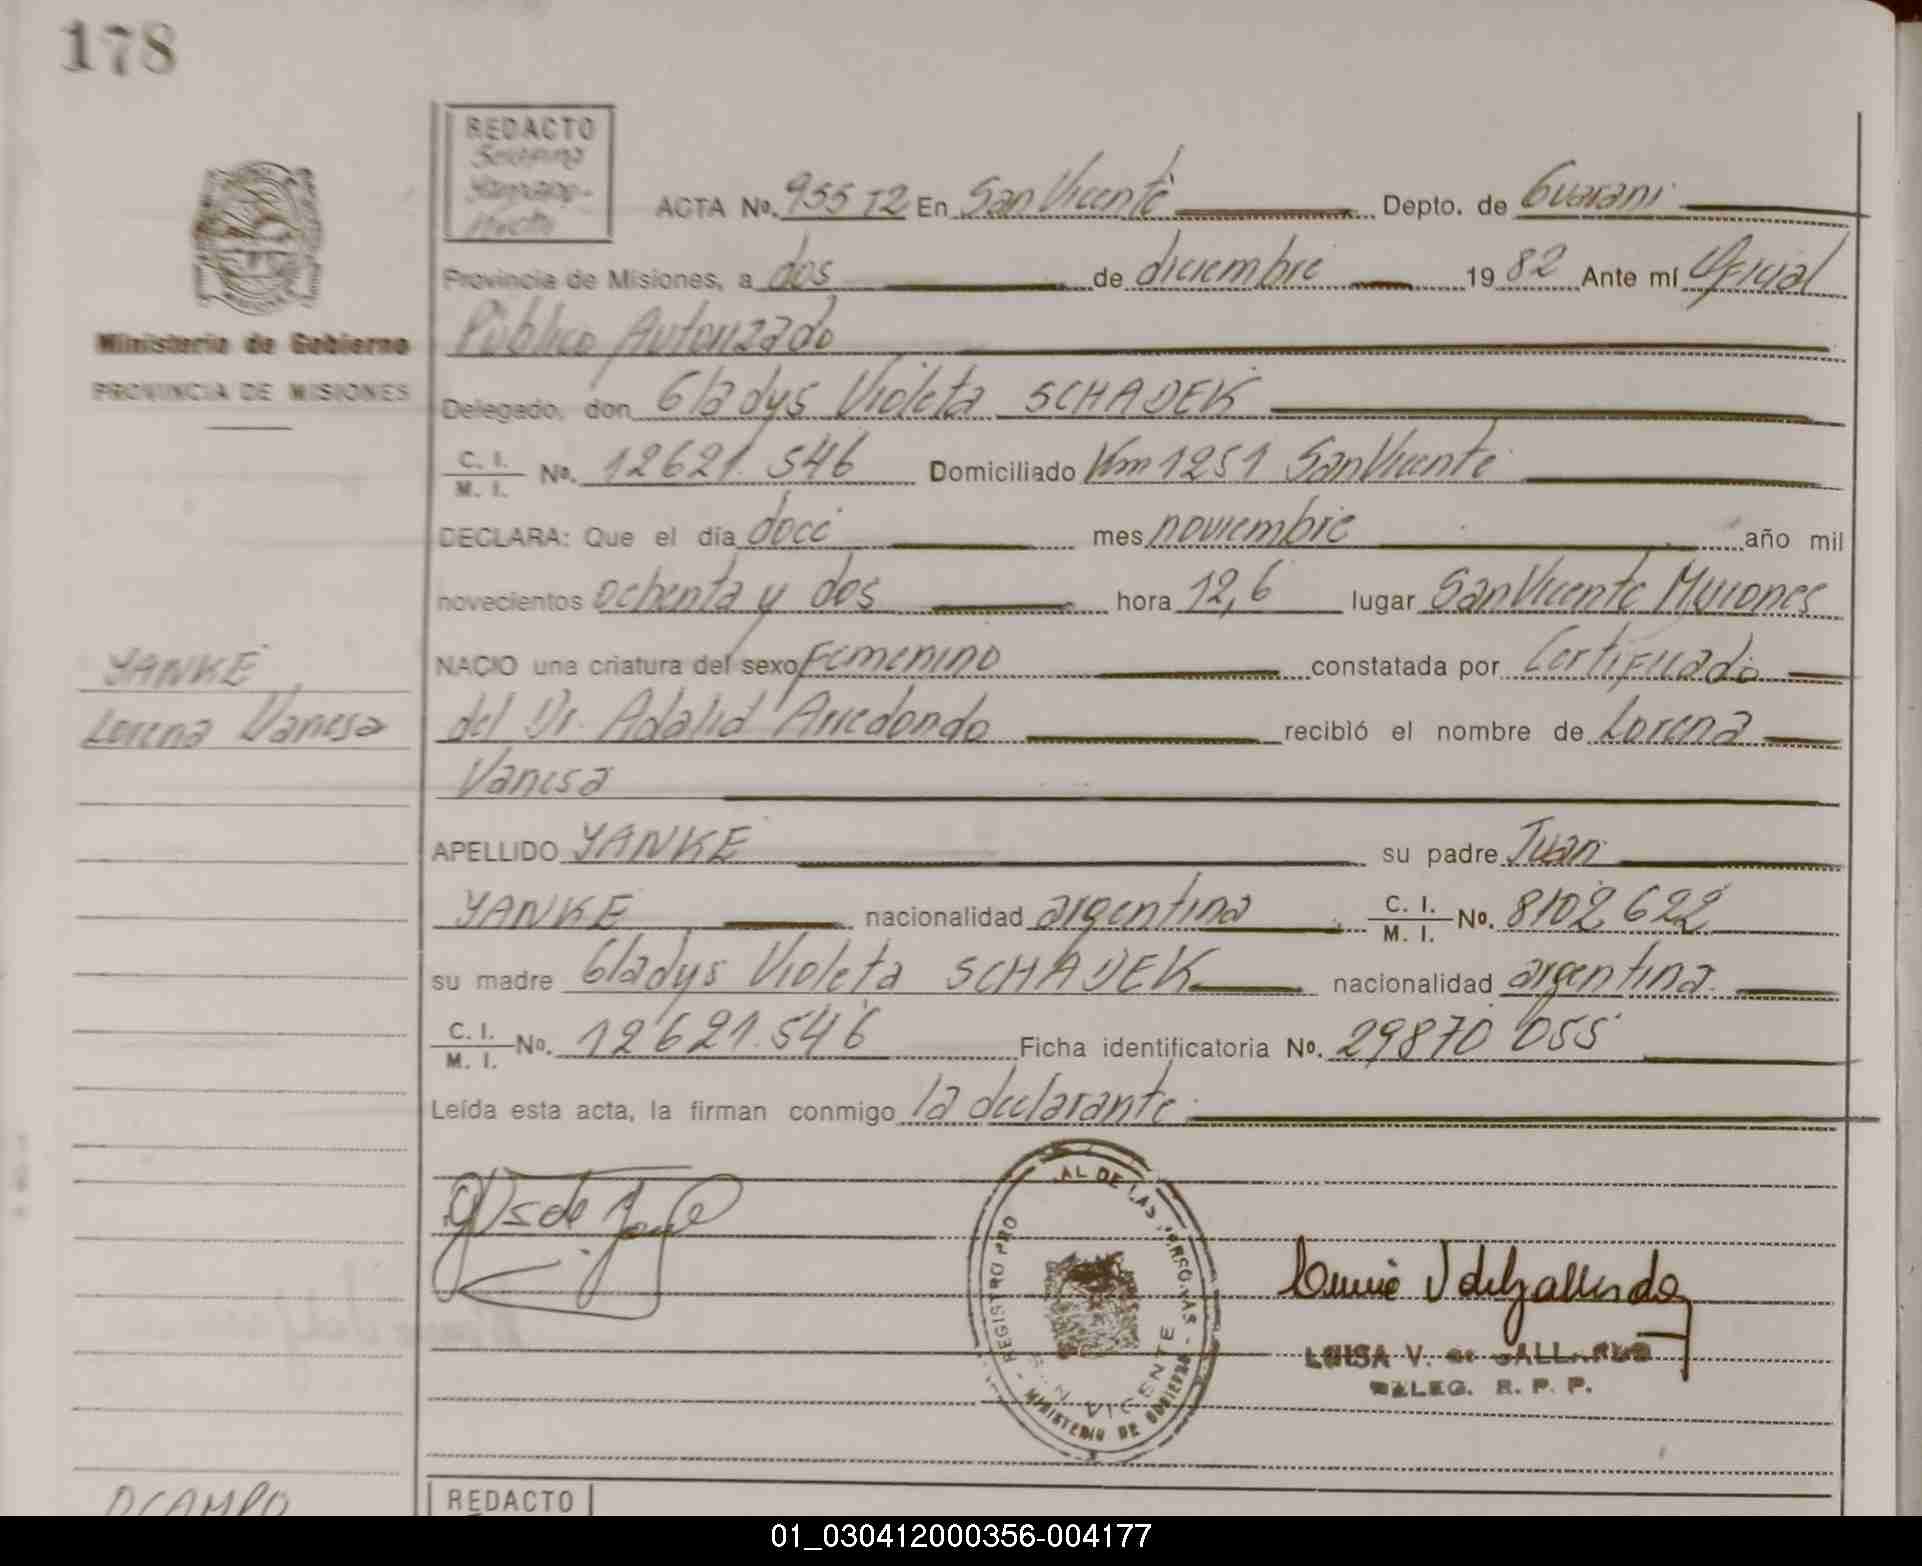 178
REDACTO
Ministerio de Gobierno
PROVINCIA DE MISIONES
ACTA No. 955 T2 En San Vicente Depto. de Guarani
Provincia de Misiones, a dos de diciembre 1982 Ante mí Oficial
Público Autorizado
Delegado, don Gladys Violeta SCHADEK
C. I. / M. I. No. 12621.546 Domiciliado Km 1251 San Vicente
DECLARA: Que el día doce mes noviembre año mil
novecientos ochenta y dos hora 12,6 lugar San Vicente Misiones
NACIO una criatura del sexo Femenino constatada por Certificado
del Dr. Adalid Arredondo recibió el nombre de Lorena
Vanesa
YANKE
Lorena Vanesa
APELLIDO YANKE su padre Juan
YANKE nacionalidad argentina C. I. / M. I. No. 8102622
su madre Gladys Violeta SCHADEK nacionalidad argentina
C. I. / M. I. No. 12621.546 Ficha identificatoria No. 29870 055
Leída esta acta, la firman conmigo la declarante
REGISTRO PRO AL DE LAS PERSONAS - MINISTERIO DE GOBIERNO
VICENTE
LUISA V. de GALLARDO
DELEG. R. P. P.
OCAMPO
REDACTO
01_030412000356-004177